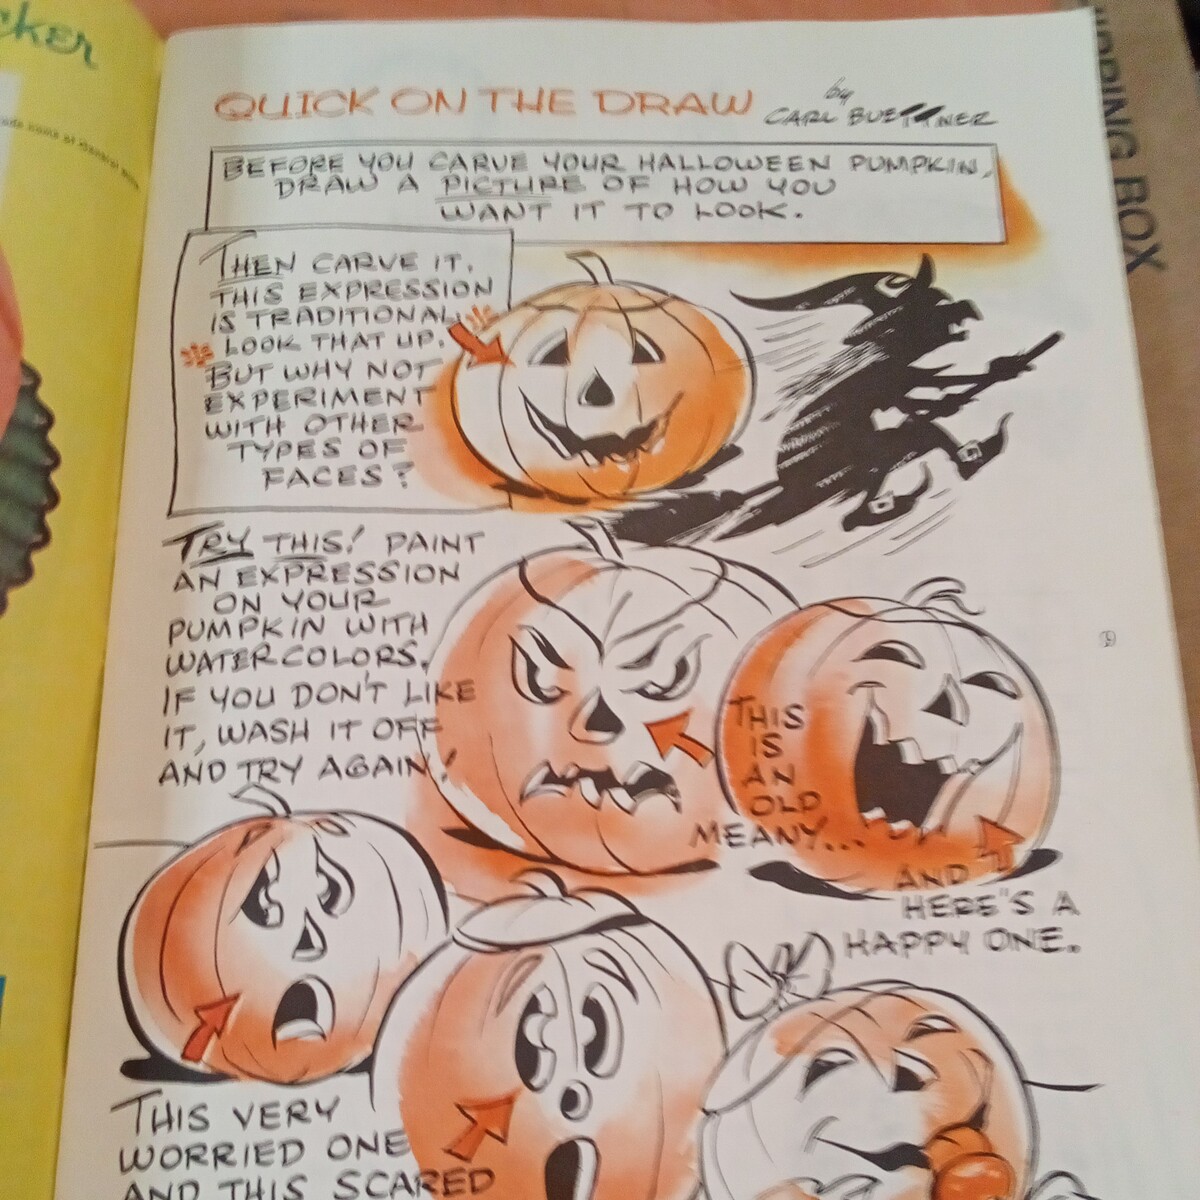 QUICK ON THE DRAW
by
CARL BUETTNER
BEFORE YOU CARVE YOUR HALLOWEEN PUMPKIN,
DRAW A PICTURE OF HOW YOU
WANT IT TO LOOK.
THEN CARVE IT.
THIS EXPRESSION
IS TRADITIONAL.
LOOK THAT UP.
BUT WHY NOT
EXPERIMENT
WITH OTHER
TYPES OF
FACES?
TRY THIS! PAINT
AN EXPRESSION
ON YOUR
PUMPKIN WITH
WATER COLORS.
IF YOU DON'T LIKE
IT, WASH IT OFF
AND TRY AGAIN!
THIS
IS
AN
OLD
MEANY...
AND
HERE'S A
HAPPY ONE.
THIS VERY
WORRIED ONE
AND THIS SCARED
cker
PING BOX